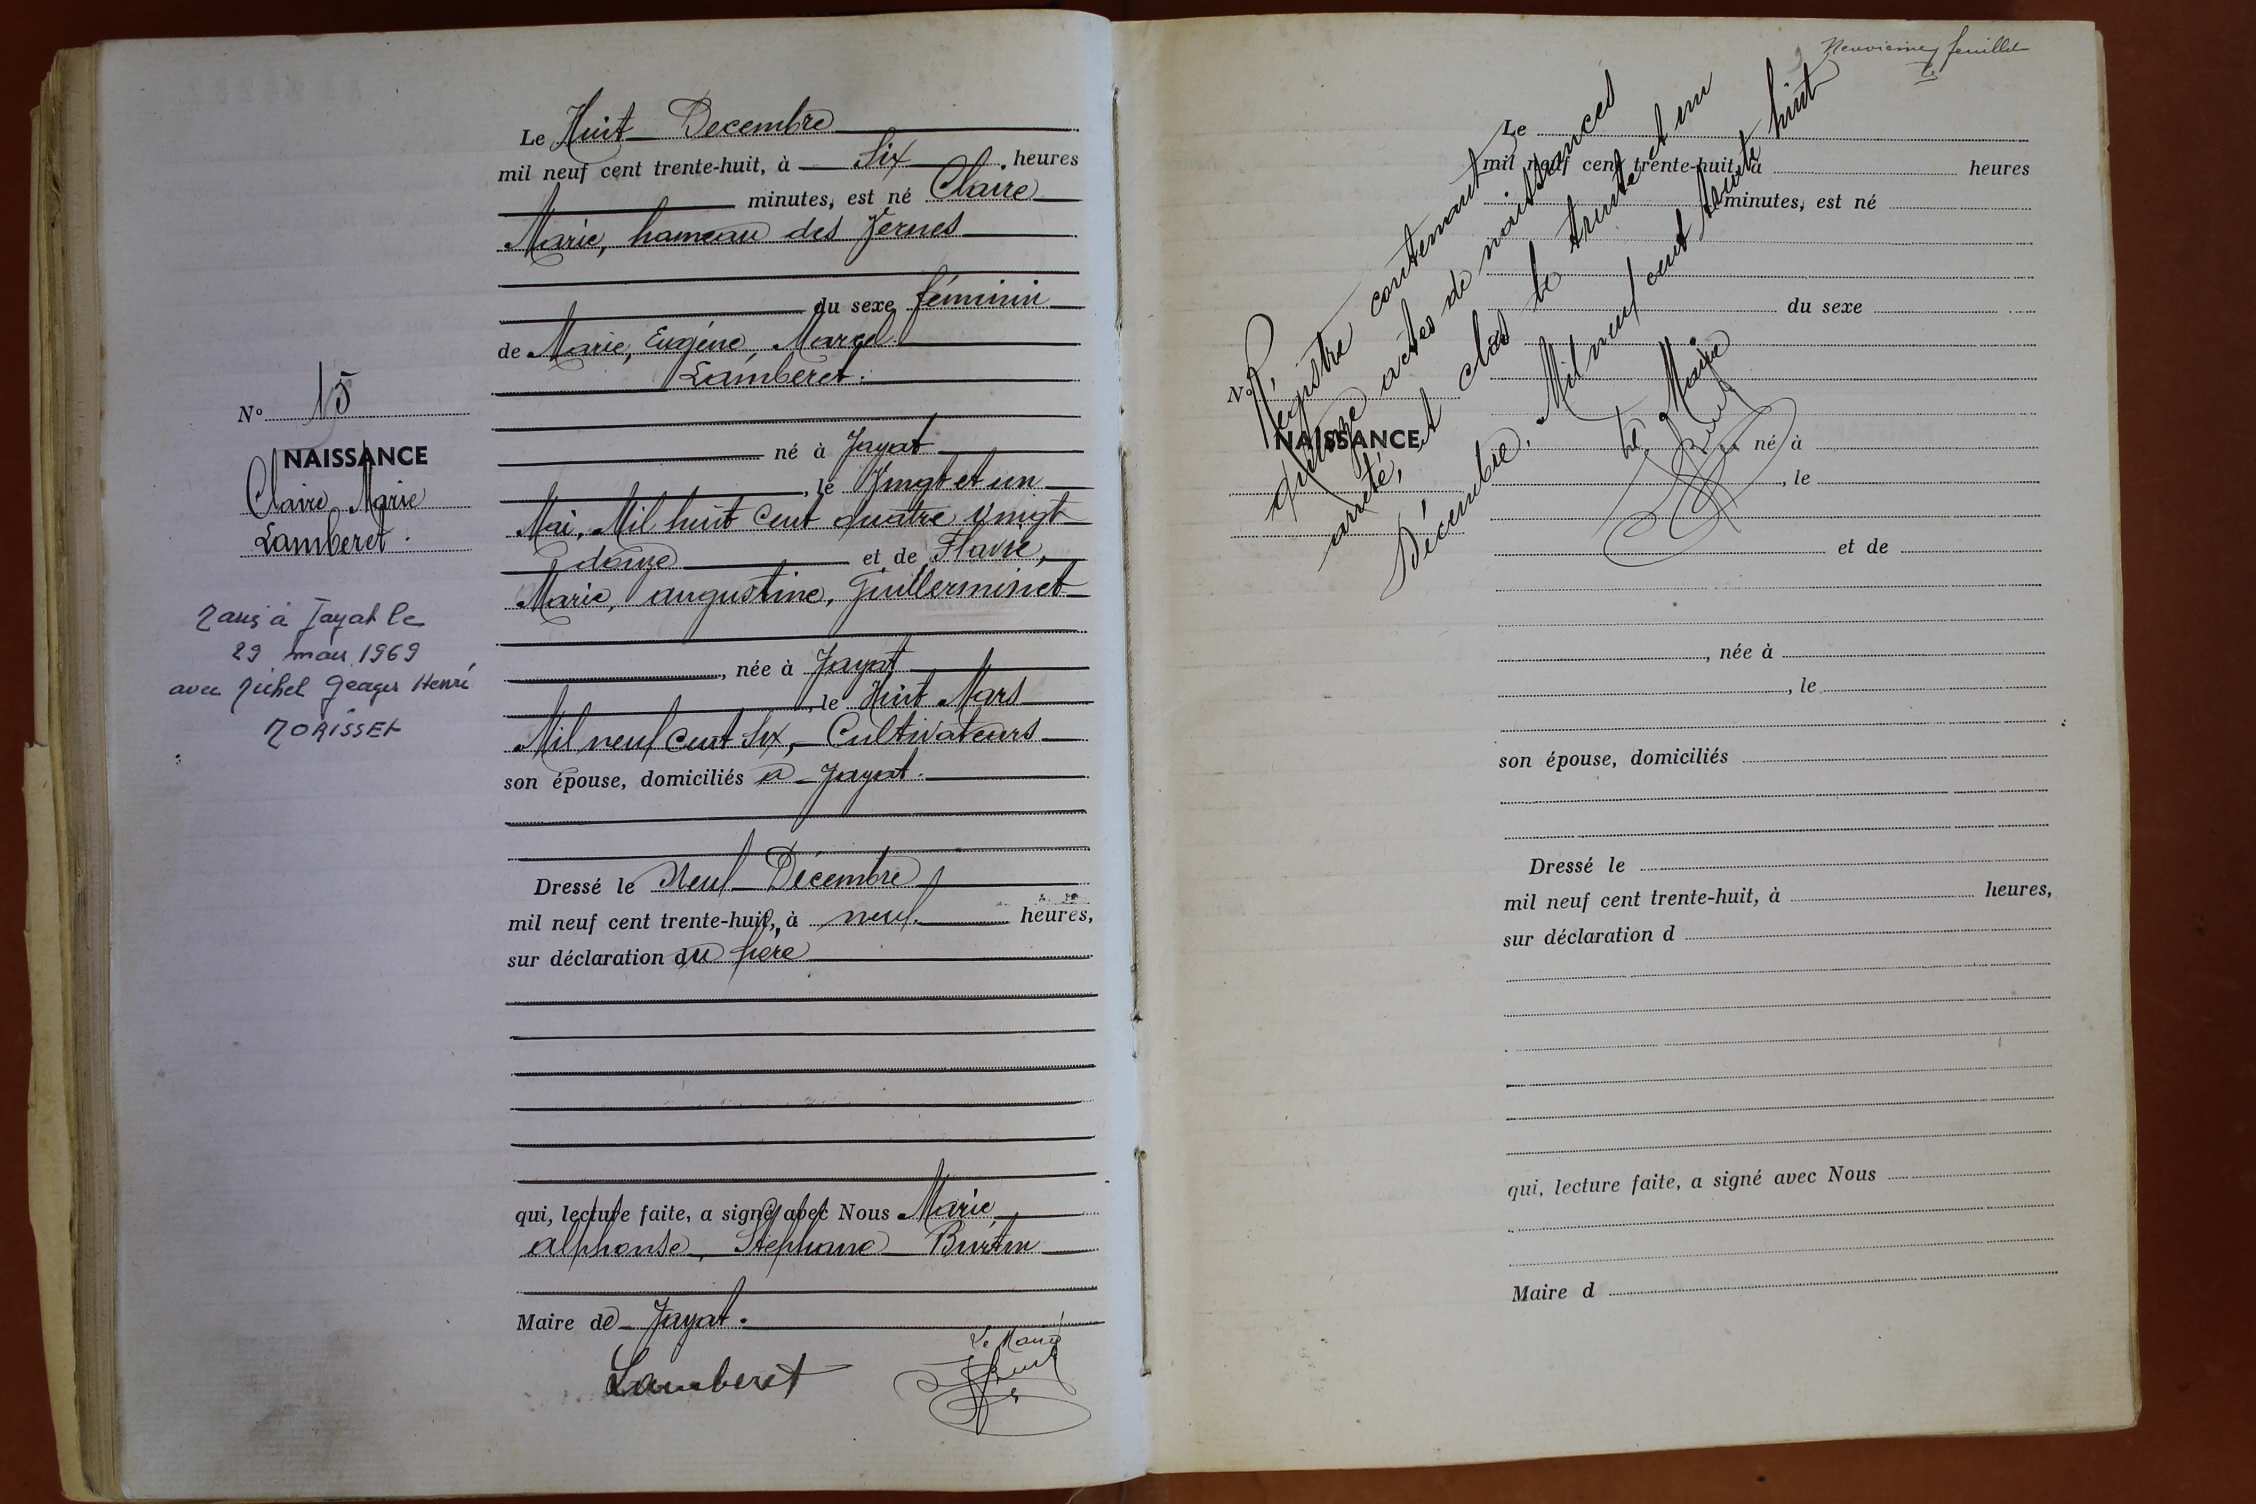 Le Huit Decembre
mil neuf cent trente-huit, à Six heures
minutes, est né Claire
Marie, hameau des Vernes
du sexe féminin
de Marie, Eugène, Marcel
Lamberet.
né à Jayat
, le Vingt et un
Mai, Mil huit Cent quatre vingt
douze et de Flavie,
Marie, augustine, Guillerminet
, née à Jayat
, le Huit Mars
Mil neuf Cent Six, Cultivateurs
son épouse, domiciliés à Jayat.
Dressé le Neuf Décembre
mil neuf cent trente-huit, à neuf heures,
sur déclaration du père
qui, lecture faite, a signé avec Nous Marie,
alphonse, Stéphane Burtin
Maire de Jayat.
Lamberet
Le Maire
N° 15
NAISSANCE
Claire Marie
Lamberet.
à Jayat le
29 mars 1969
avec Michel Georges Henri
MORISSET
Neuvième feuillet
Le
mil neuf cent trente-huit, à heures
minutes, est né
du sexe
né à
, le
et de
, née à
, le
son épouse, domiciliés
Dressé le
mil neuf cent trente-huit, à heures,
sur déclaration d
qui, lecture faite, a signé avec Nous
Maire d
N°
NAISSANCE
Régistre contenant
quinze actes de naissances
arrêté, et clos le trente et un
Décembre. Mil neuf cent trente huit
Le Maire